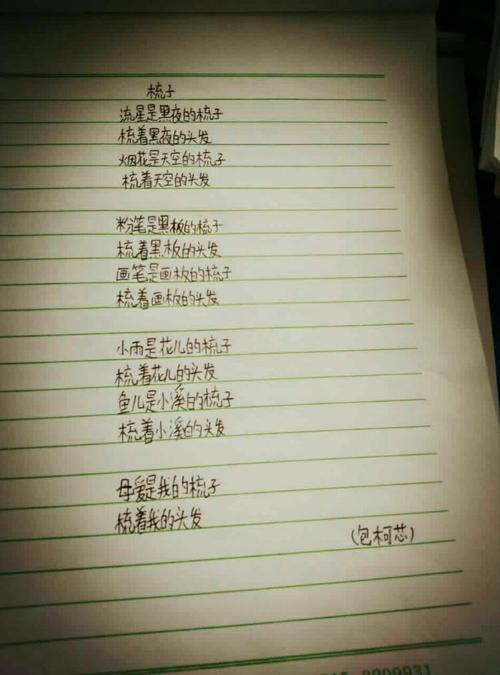 梳子
流星是黑夜的梳子
梳着黑夜的头发
烟花是天空的梳子
梳着天空的头发
粉笔是黑板的梳子
梳着黑板的头发
画笔是画板的梳子
梳着画板的头发
小雨是花儿的梳子
梳着花儿的头发
鱼儿是小溪的梳子
梳着小溪的头发
母爱是我的梳子
梳着我的头发
(包柯芯)